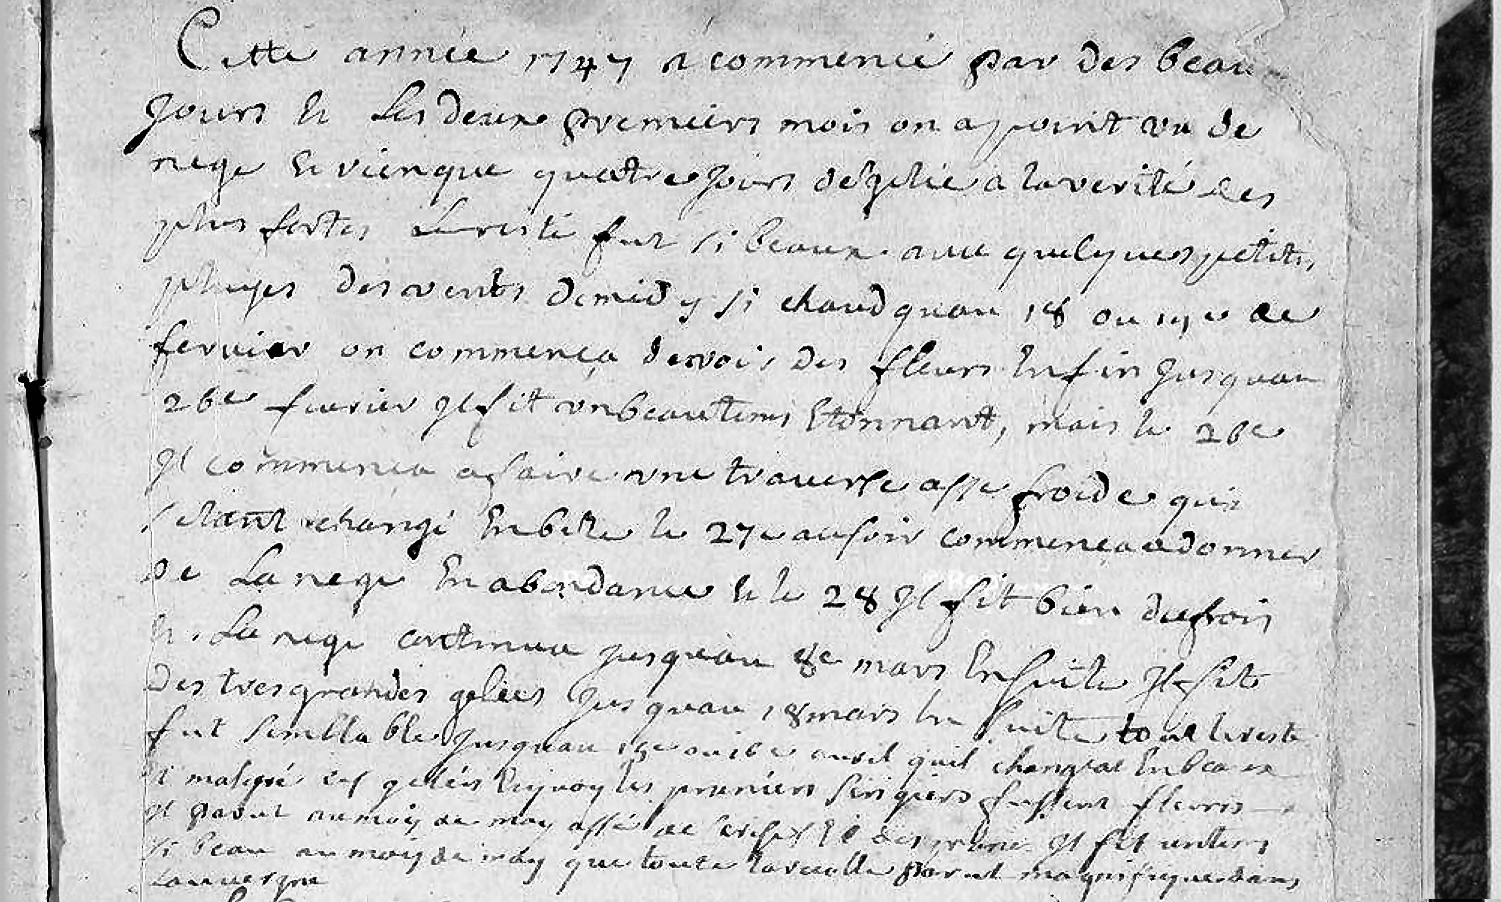 Cette année 1747 a commencé par des beau
jours et les deux premiers mois on a point vu de
nege et rien que quatre jours de gelée a la verité des
plus fortes le reste fut si beaux avec quelques petites
pluyes des vents de midy si chaud quau 18 ou 19e de
fevrier on commença de voir des fleurs enfin jusquau
26e fevrier jl fit un beau tems etonnant, mais le 26e
jl commença a faire une traverse asse froide qui
setant changé en bize le 27e au soir commença a donner
de la nege en abondance et le 28 jl fit bien du frois
et la nege continua jusquau 8e mars ensuite jl fit
des tres grandes gelées jusquau 18 mars en suite tout le reste
fut semblable jusquau 15e ou 16e avril quil changeat en beaux
et malgré ces gelées quoy les premiers serigiers fussent fleuris
jl parut au moy de may assé de serises et des prune jl fit un tems
si beau au moy de may que toute la recolte parut magnifique dans
Lauvergne